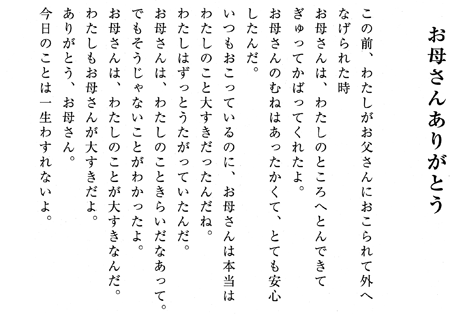 お母さんありがとう
この前、わたしがお父さんにおこられて外へ
なげられた時
お母さんは、わたしのところへとんできて
ぎゅってかばってくれたよ。
お母さんのむねはあったかくて、とても安心
したんだ。
いつもおこっているのに、お母さんは本当は
わたしのこと大すきだったんだね。
わたしはずっとうたがっていたんだ。
お母さんは、わたしのこときらいだなあって。
でもそうじゃないことがわかったよ。
お母さんは、わたしのことが大すきなんだ。
わたしもお母さんが大すきだよ。
ありがとう、お母さん。
今日のことは一生わすれないよ。